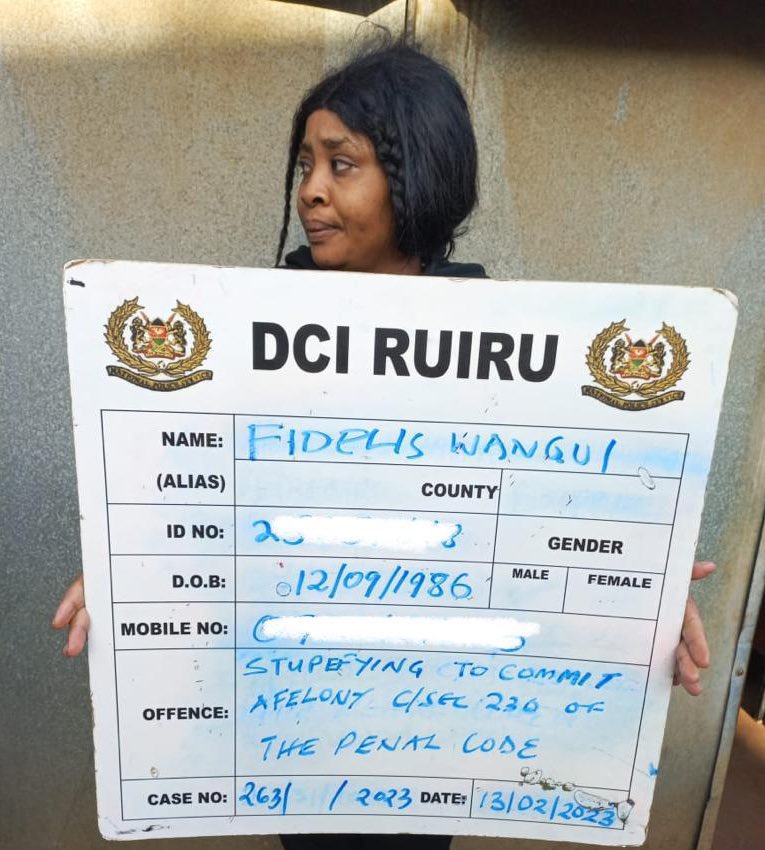 DCI RUIRU
NATIONAL POLICE SERVICE
NATIONAL POLICE SERVICE
NAME: FIDELIS WANGUI
(ALIAS) COUNTY
ID NO: 2 3
GENDER
D.O.B: 12/09/1986 MALE FEMALE
MOBILE NO: 0
OFFENCE: STUPEFYING TO COMMIT
AFELONY C/SEC 230 OF
THE PENAL CODE
CASE NO: 263/ /2023 DATE: 13/02/2023